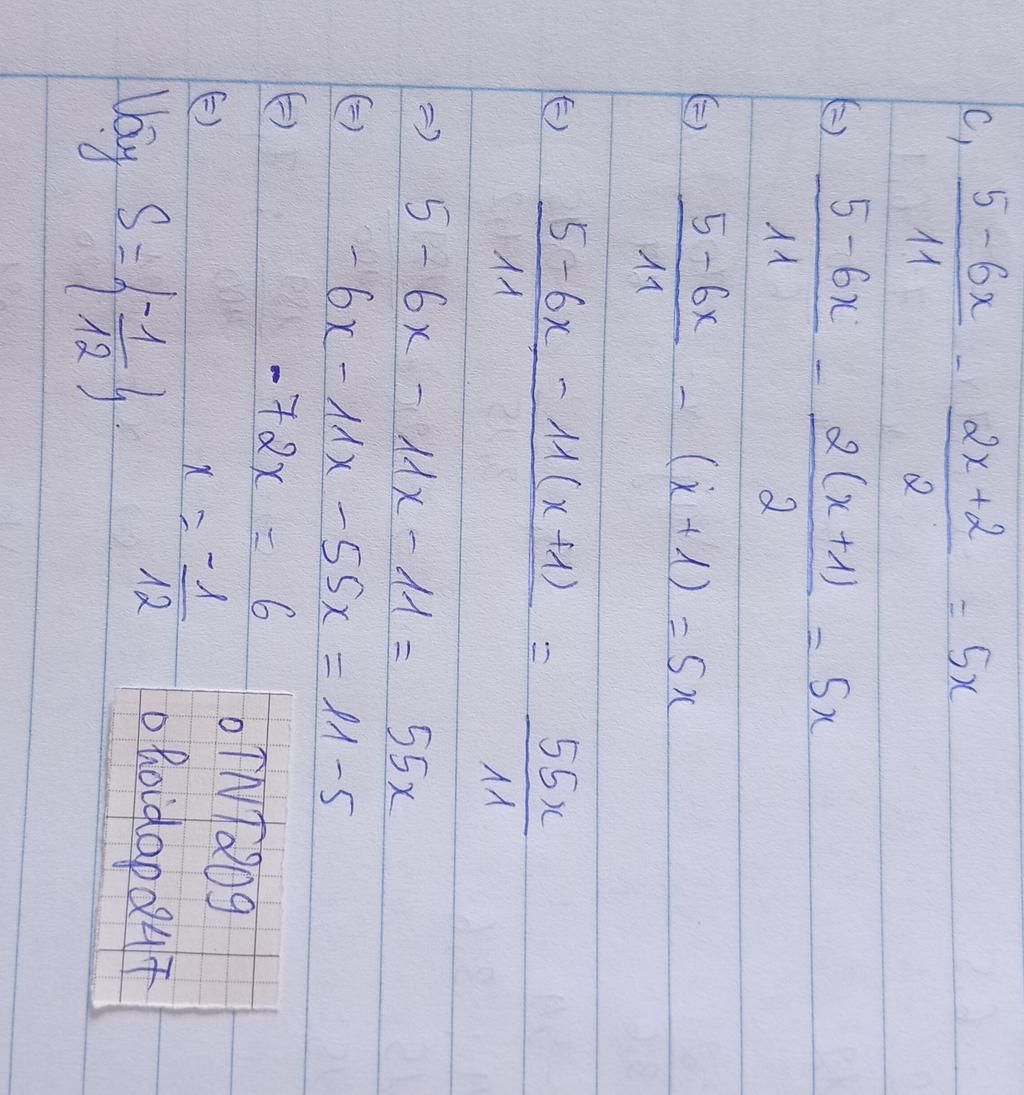 c, (5-6x)/11 - (2x+2)/2 = 5x
(=) (5-6x)/11 - 2(x+1)/2 = 5x
(=) (5-6x)/11 - (x+1) = 5x
(=) (5-6x-11(x+1))/11 = 55x/11
=) 5-6x-11x-11 = 55x
(=) -6x-11x-55x = 11-5
(=) -72x = 6
(=) x = -1/12
Vậy S = {-1/12}.
TNT209
hoidap247